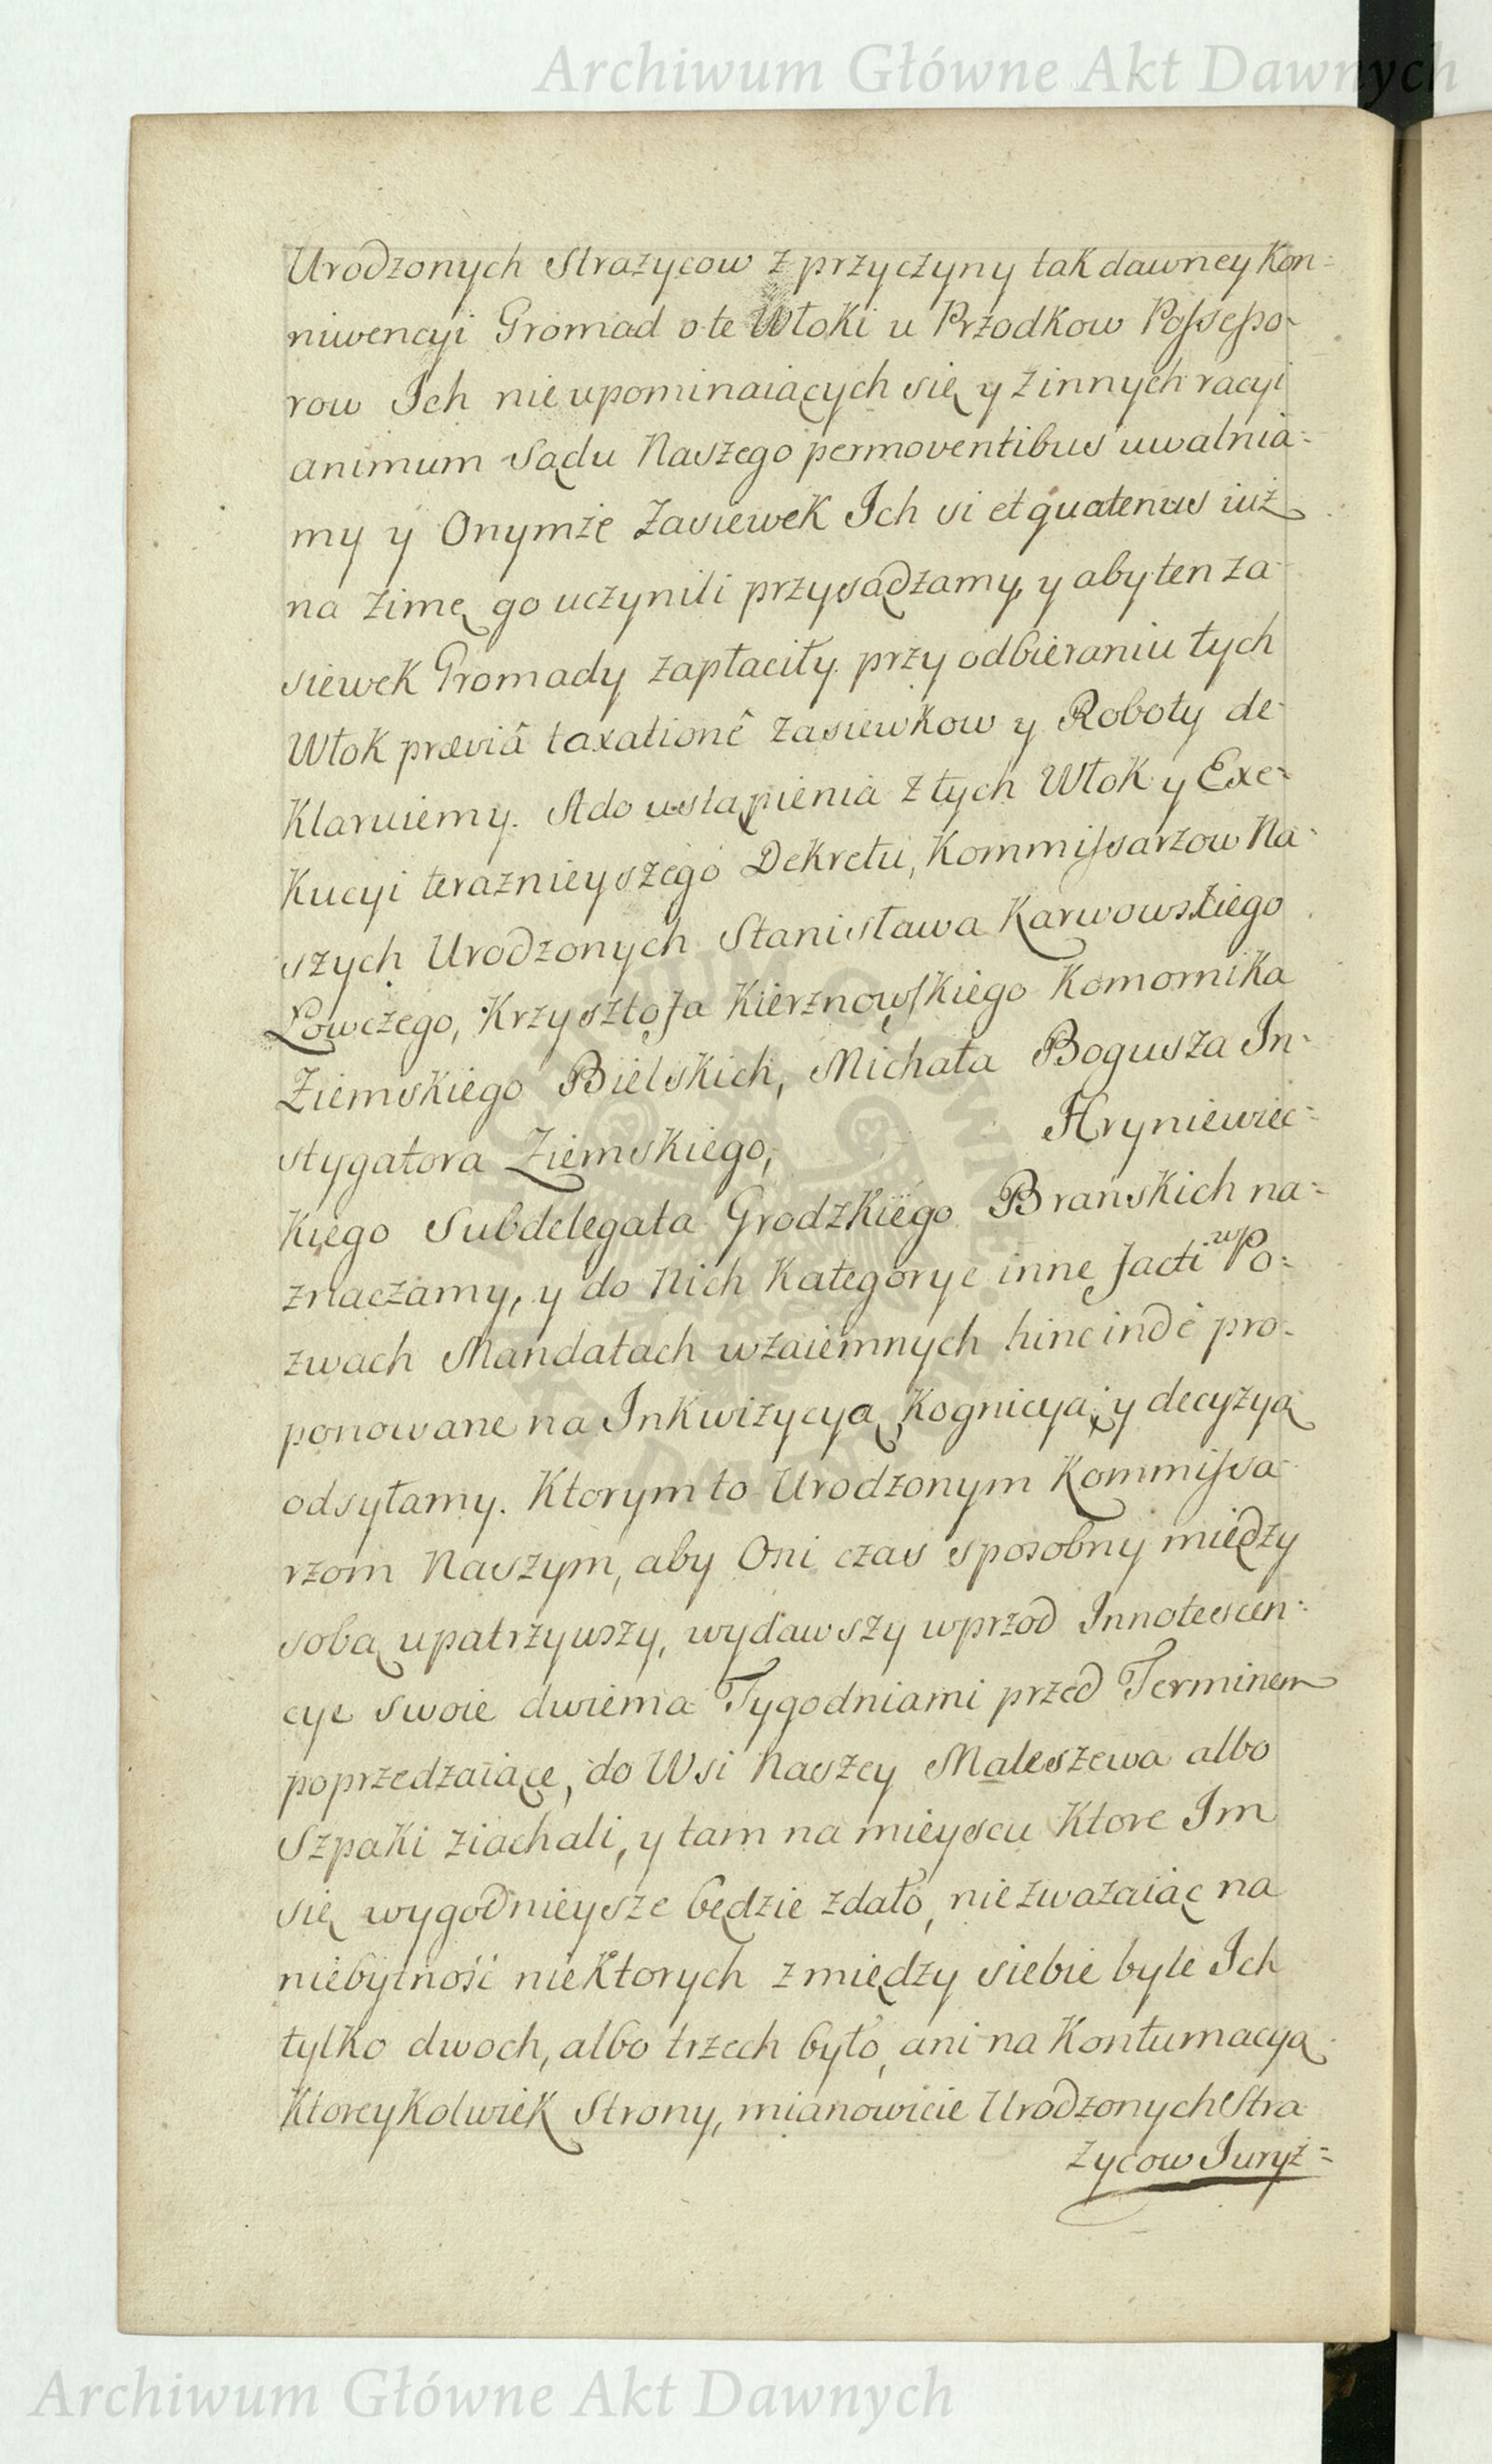 Archiwum Główne Akt Dawnych
Urodzonych Strażycow z przyczyny tak dawney Kon=
niwencyi Gromad o te Włoki u Przodkow Possesso-
row Ich nie upominaiących się y z innych racyi
animum Sądu Naszego permoventibus uwalnia=
my y Onymże Zasiewek Ich si et quatenus iuż
na zimę go uczynili przysądzamy, y aby ten za-
siewek Gromady zapłaciły przy odbieraniu tych
Włok præviâ taxationê zasiewkow y Roboty de-
klaruiemy. A do ustąpienia z tych Włok y Exe=
kucyi teraznieyszego Dekretu, Kommissarzow Na-
szych Urodzonych Stanisława Karwowskiego
Łowczego, Krzysztofa Kierznowskiego Komornika
Ziemskiego Bielskich, Michała Bogusza In-
stygatora Ziemskiego, Hryniewiec=
kiego Subdelegata Grodzkiego Branskich na=
znaczamy, y do Nich Kategorye inne facti w Po=
zwach Mandatach wzaiemnych hinc inde pro-
ponowane na Inkwizycyą Kognicyą y decyzyą
odsyłamy. Ktorym to Urodzonym Kommissa-
rzom Naszym, aby Oni czas sposobny między
sobą upatrzywszy, wydawszy wprzod Innotescen=
cye swoie dwiema Tygodniami przed Terminem
poprzedzaiące, do Wsi Naszey Maleszewa albo
Szpaki ziachali, y tam na mieyscu Ktore Im
się wygodnieysze będzie zdało, nie zważaiąc na
niebytność niektorych z między siebie byle Ich
tylko dwoch, albo trzech było, ani na Kontumacyą
Ktoreykolwiek Strony, mianowicie Urodzonych Stra
życow Juryz=
Archiwum Główne Akt Dawnych